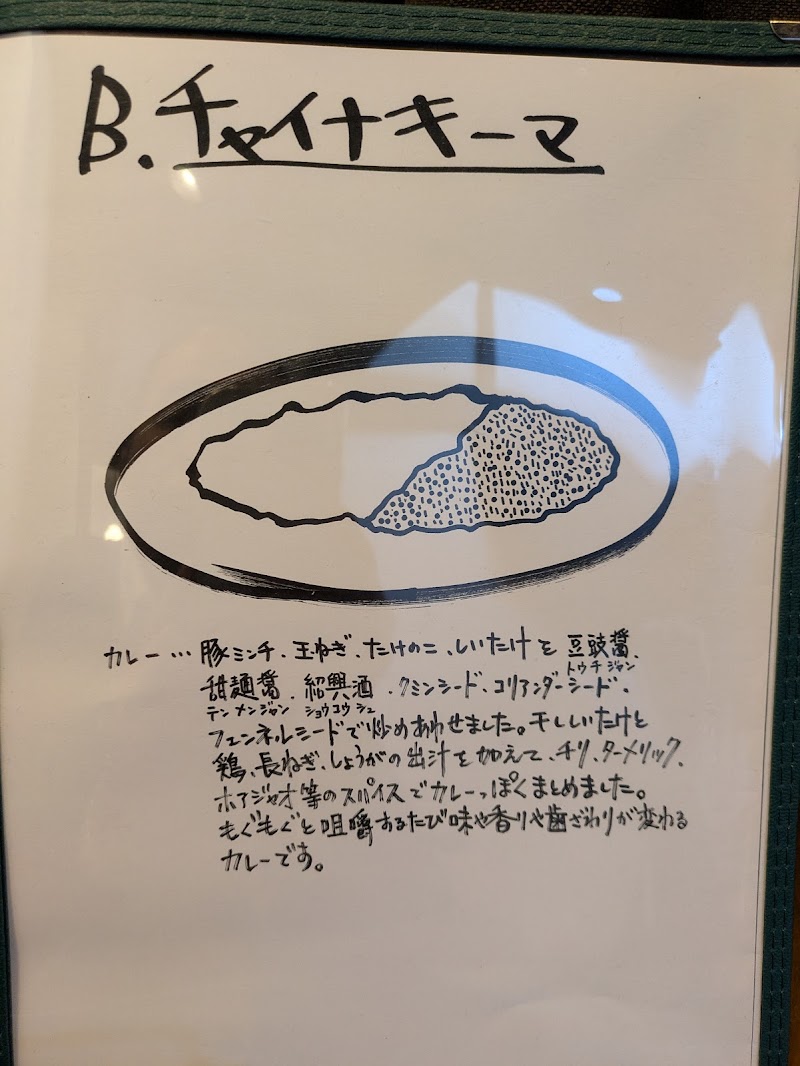 B.チャイナキーマ
カレー…豚ミンチ、玉ねぎ、たけのこ、しいたけを豆豉醤、
トウチジャン
甜麺醤、紹興酒、クミンシード、コリアンダーシード、
テンメンジャン ショウコウシュ
フェンネルシードで炒めあわせました。干ししいたけと
鶏、長ねぎ、しょうがの出汁を加えて、チリ、ターメリック、
ホアジャオ等のスパイスでカレーっぽくまとめました。
もぐもぐと咀嚼するたび味や香りや歯ざわりが変わる
カレーです。